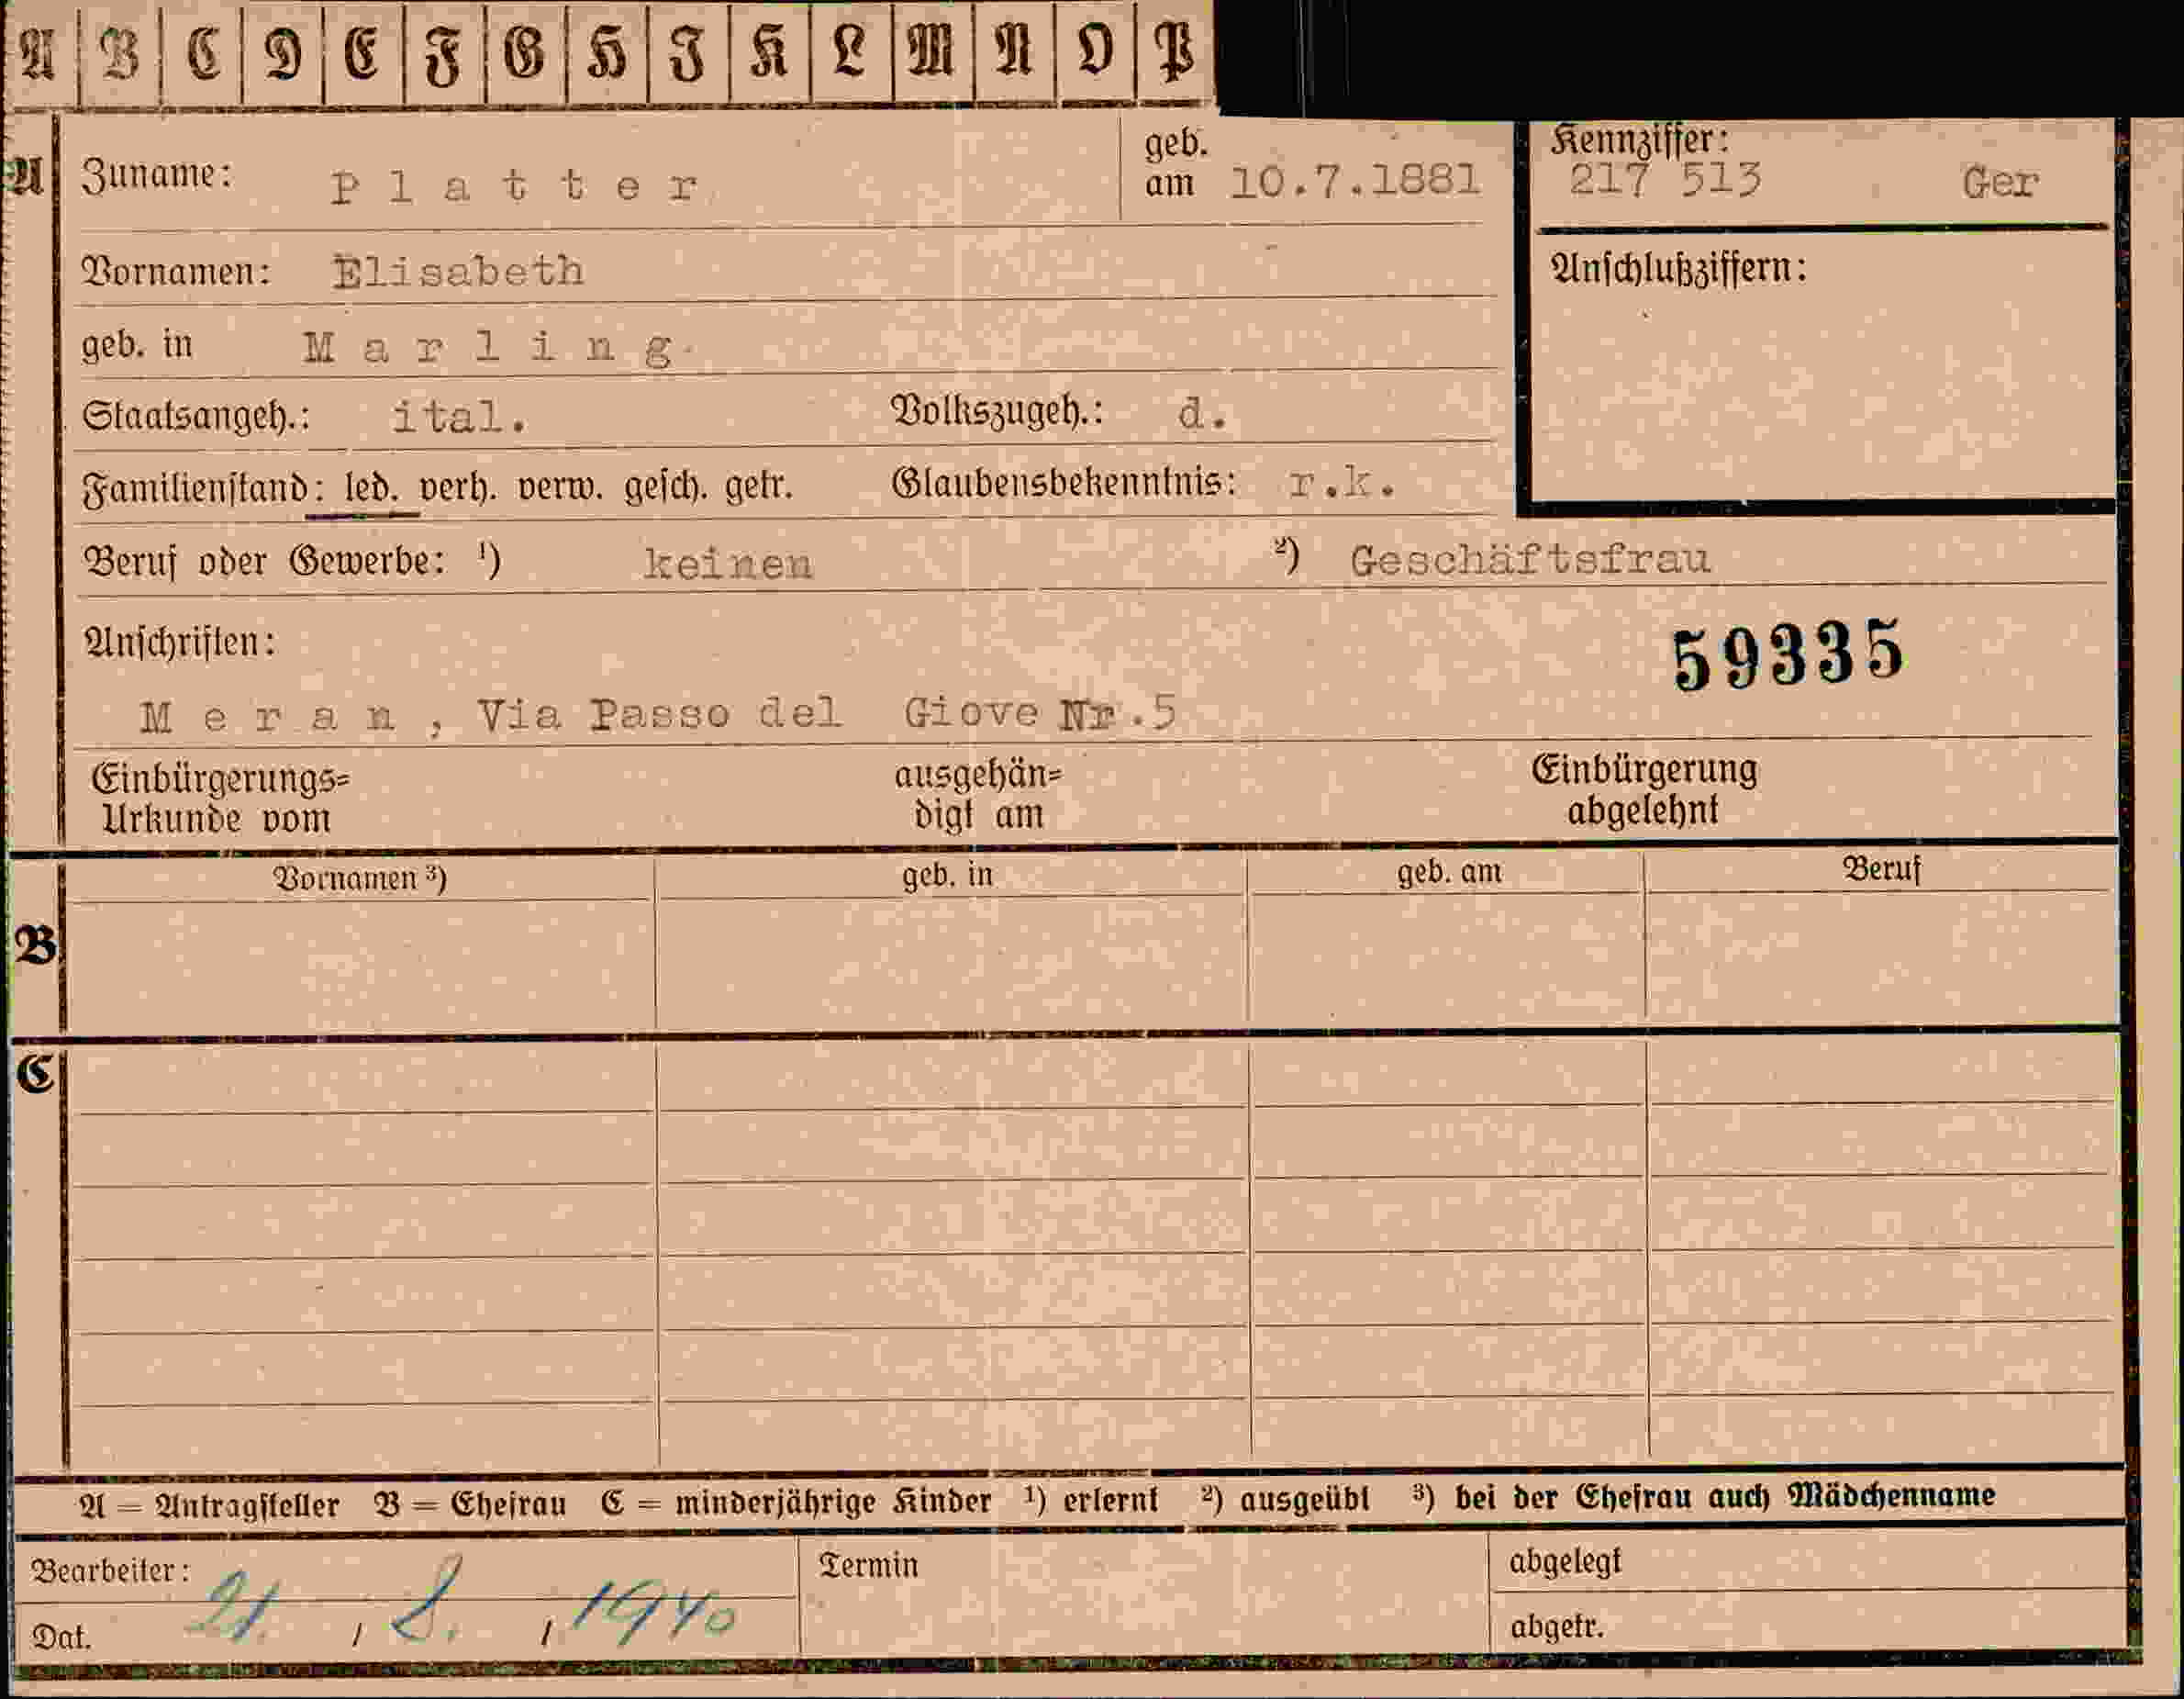 A B C D E F G H I K L M N O P
A
Zuname: P l a t t e r
geb. am 10.7.1881
Kennziffer:
217 513 Ger
Vornamen: Elisabeth
Anschlußziffern:
geb. in M a r l i n g
Staatsangeh.: ital. Volkszugeh.: d.
Familienstand: led. verh. verw. gesch. getr. Glaubensbekenntnis: r.k.
Beruf oder Gewerbe: ¹) keinen ²) Geschäftsfrau
Anschriften:
59335
M e r a n , Via Passo del Giove Nr.5
Einbürgerungs= ausgehän= Einbürgerung
Urkunde vom digt am abgelehnt
Vornamen ³) geb. in geb. am Beruf
B
C
A = Antragsteller B = Ehefrau C = minderjährige Kinder ¹) erlernt ²) ausgeübt ³) bei der Ehefrau auch Mädchenname
Bearbeiter: Termin abgelegt
Dat. 21. / 8. / 1940 abgetr.